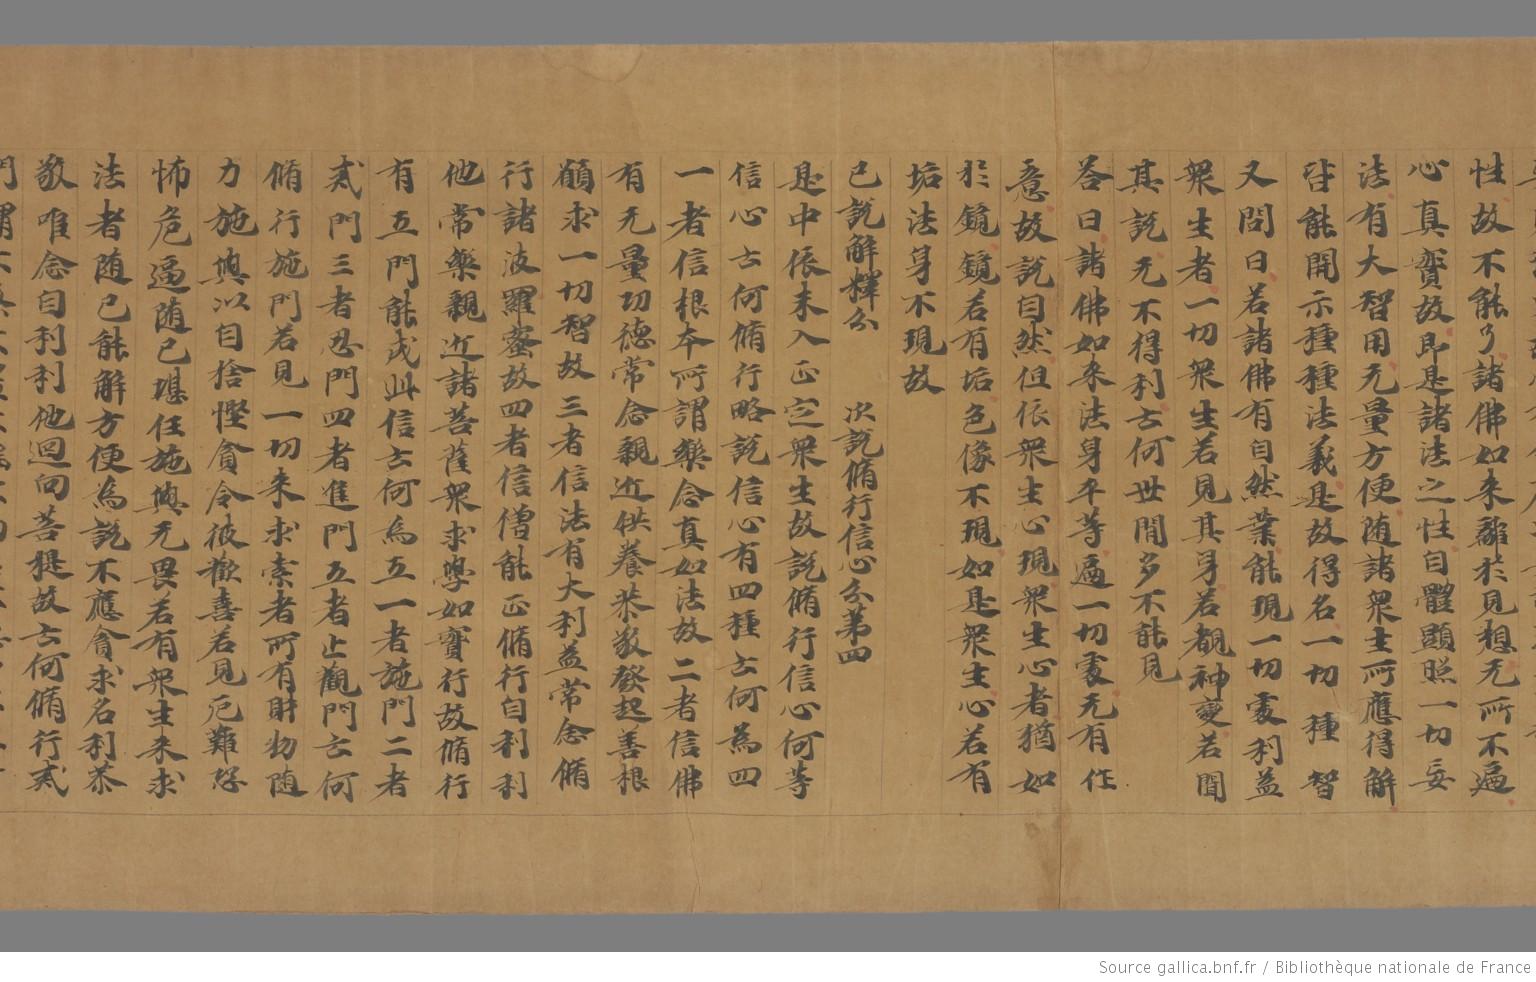 性故不能了諸佛如来離於見想无所不遍
心真實故即是諸法之性自體顯照一切妄
法有大智用无量方便随諸衆生所應得解
皆能開示種種法義是故得名一切種智
又問曰若諸佛有自然業能現一切處利益
衆生者一切衆生若見其身若覩神變若聞
其說无不得利云何世間多不能見
荅曰諸佛如来法身平等遍一切處无有作
意故說自然但依衆生心現衆生心者猶如
於鏡鏡若有垢色像不現如是衆生心若有
垢法身不現故
已說解釋分 次說脩行信心分第四
是中依未入正定衆生故說脩行信心何等
信心云何脩行略說信心有四種云何為四
一者信根本所謂樂念真如法故二者信佛
有无量功德常念親近供養恭敬發起善根
願求一切智故三者信法有大利益常念脩
行諸波羅蜜故四者信僧能正脩行自利利
他常樂親近諸菩薩衆求學如實行故脩行
有五門能成此信云何為五一者施門二者
戒門三者忍門四者進門五者止觀門云何
脩行施門若見一切来求索者所有財物随
力施與以自捨慳貪令彼歡喜若見厄難恐
怖危逼随已堪任施與无畏若有衆生来求
法者随已能解方便為說不應貪求名利恭
敬唯念自利利他迴向菩提故云何脩行戒